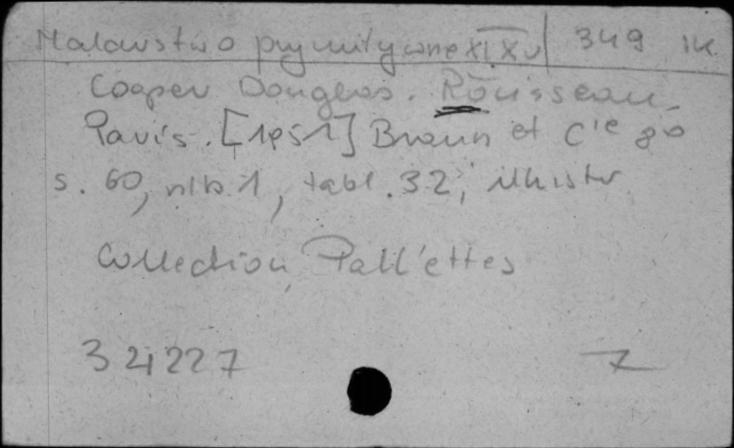 Malarstwo prymitywne XIX, XX w 349 IK
Cooper Douglas. Rousseau.
Paris. [1951] Braun et Cie 8o
s. 60, nlb. 1, tabl. 32, ilustr.
Collection Palettes
321227 7